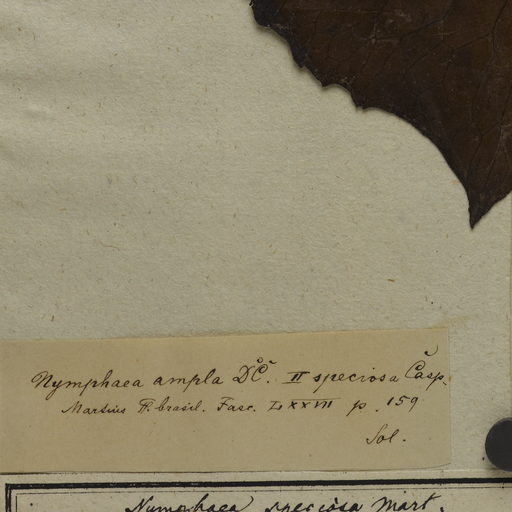 Nymphaea ampla DC. II speciosa Casp.
Martius Fl. brasil. Fasc. LXXVII p. 159
Sol.
Nymphaea speciosa Mart.